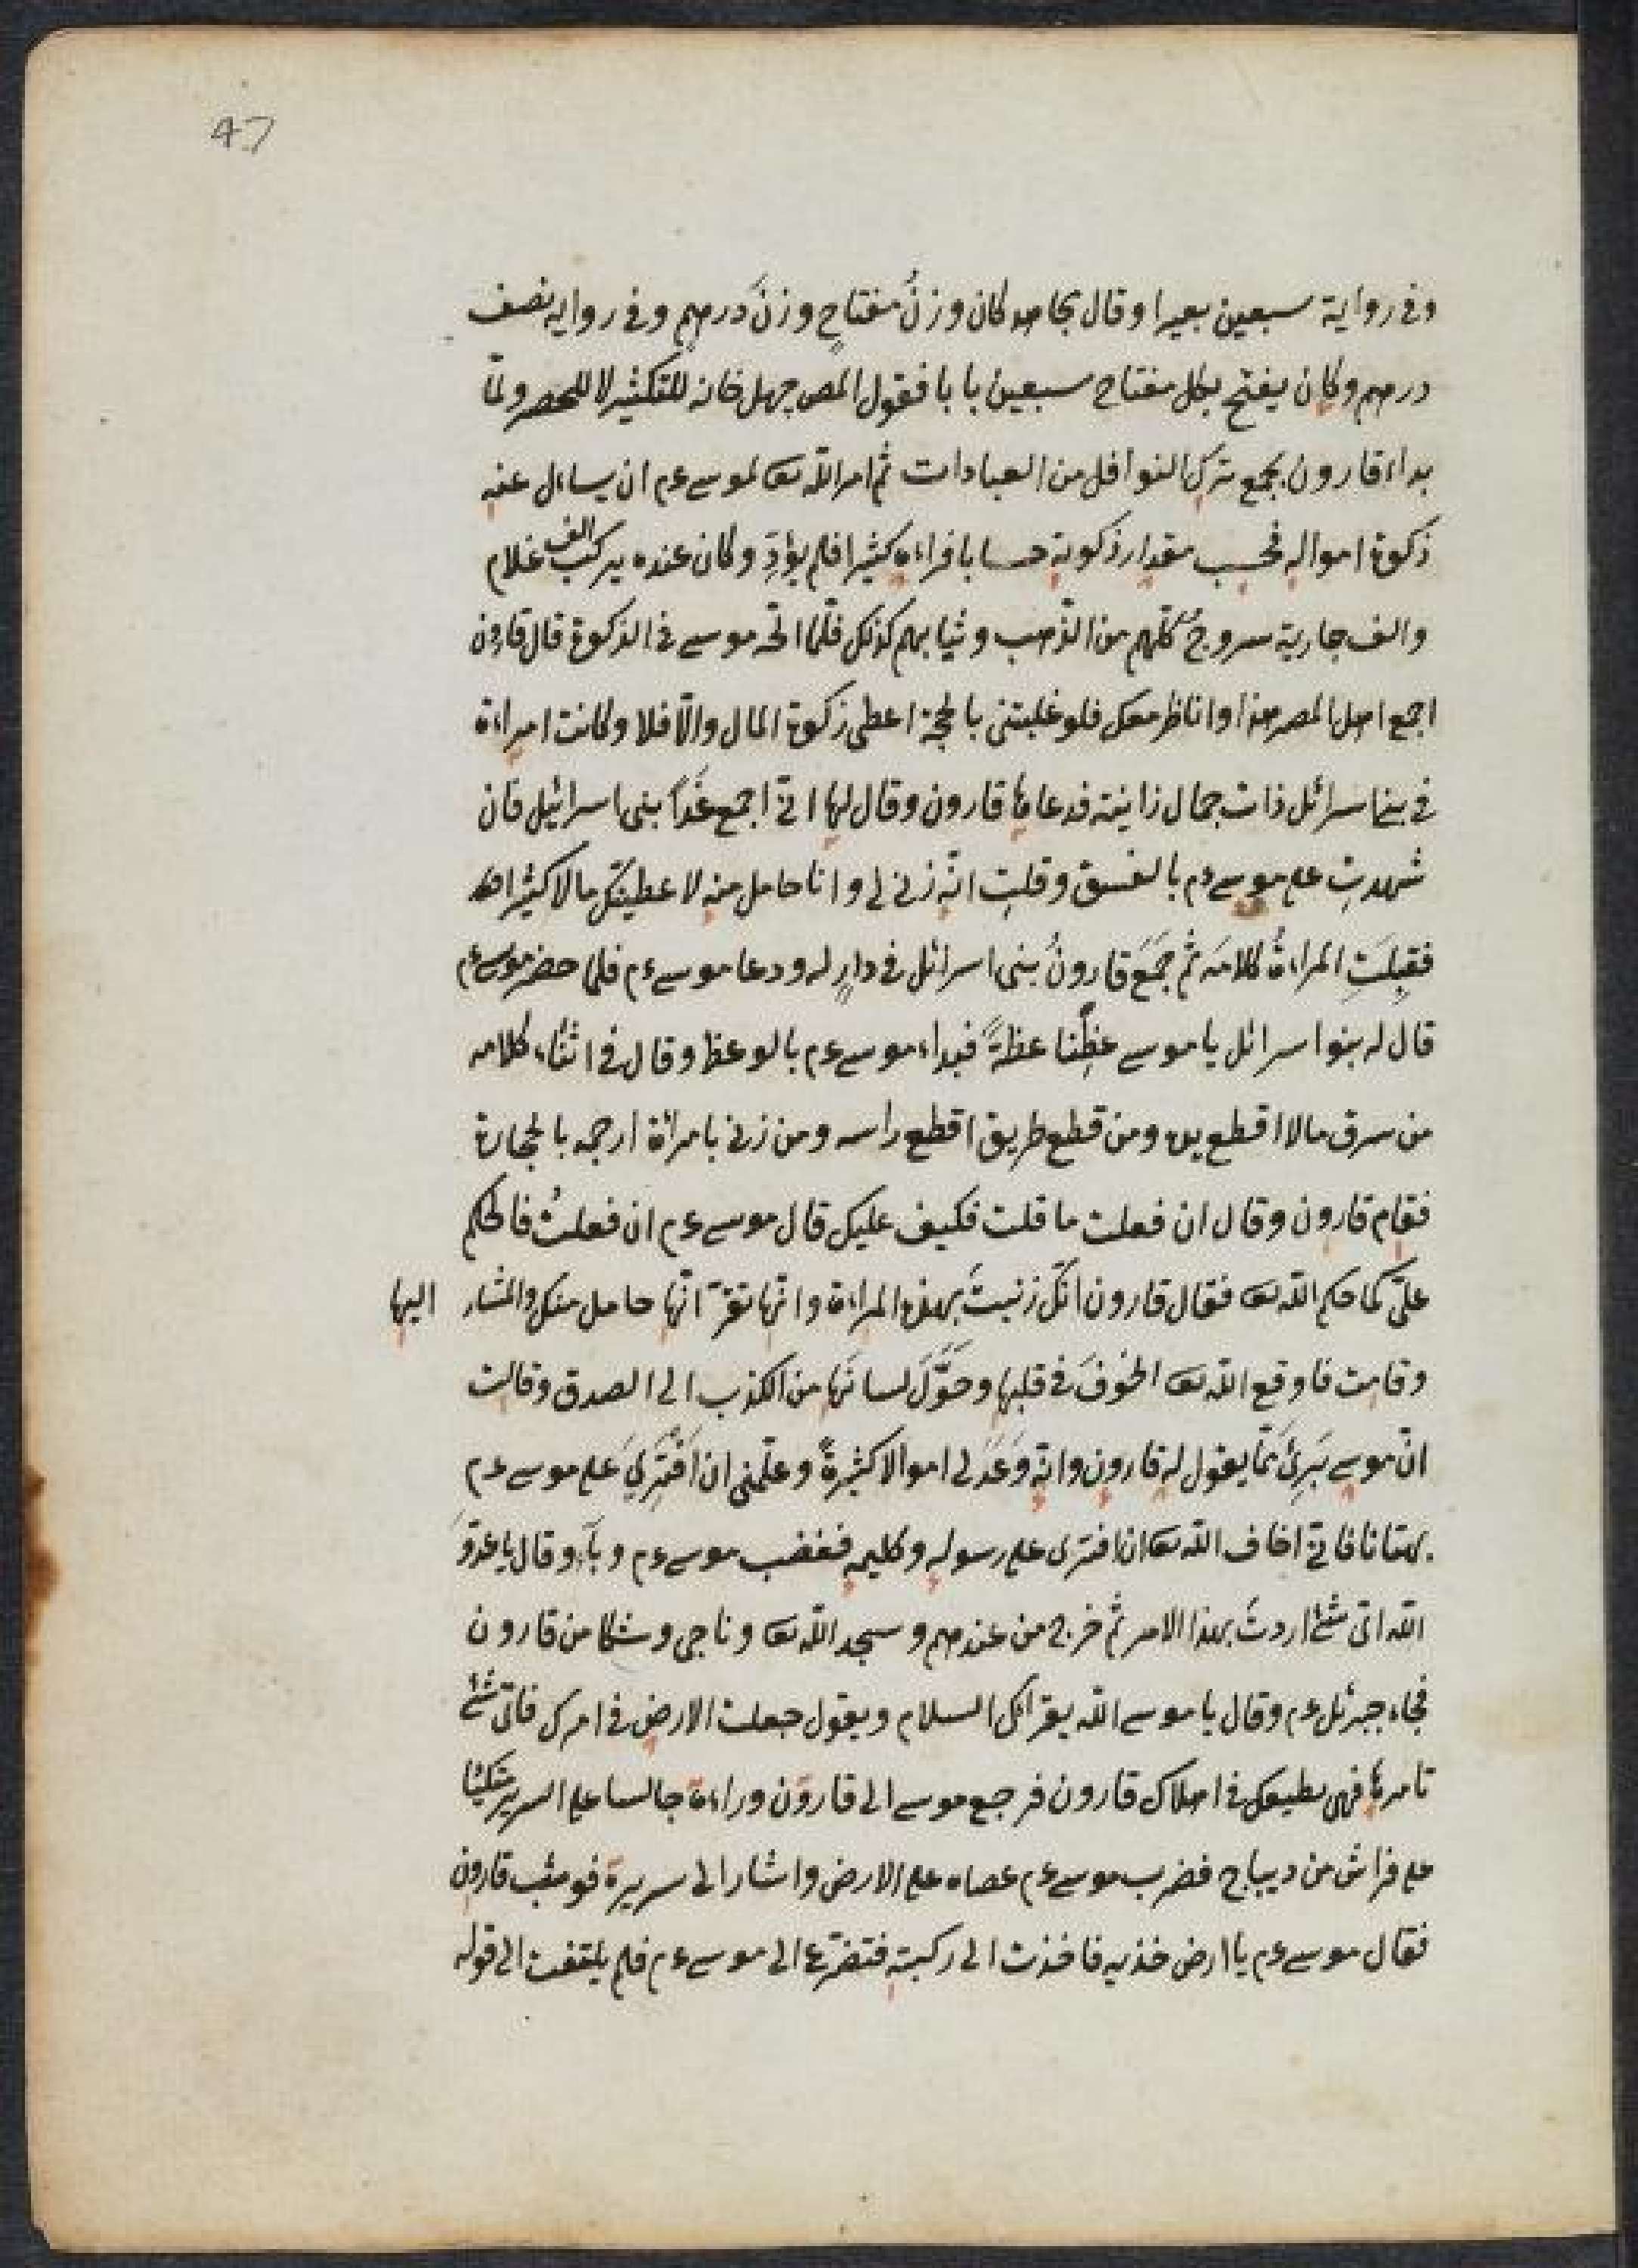 47
وفى رواية سبعين بعيرا وقال مجاهد كان وزنُ مفتاحٍ وزنَ درهمٍ وفى رواية نصف
درهم وكان يفتح بكل مفتاح سبعين بابا فقول المص جهل خانه للتكثير لا للحصر ولمّا
بداء قارون بجمع ترك النوافل من العبادات ثم امر الله تعا لموسى عم ان يسأل عنه
زكوة امواله فحسب مقدار زكوته حسابا فراءه كثيرا فلم يؤدِّ وكان عنده يركب الف غلام
والف جارية سروجُ كلّهم من الذّهب وثيابهم كذلك فلّما الحّ موسى فى الزكوة قال قارون
اجمع اهل المصر هذا واناظر معك فلو غلبتنى بالحجة اعطى زكوة المال والّا فلا وكانت امراءة
فى بنى اسرائل ذات جمال زانية فدعاها قارون وقال لها انّى اجمع غدًا بنى اسرائيل فان
شهدتِ على موسى عم بالفسق وقلتِ انّه زنى لى وانا حامل منه لاعطينّك مالا كثيرا
فقبِلَتِ المراءةُ كلامَه ثم جَمَعَ قارونُ بنى اسرائل فى دارٍ له ودعا موسى عم فلما حضر موسى عم
قال له بنوا اسرائل يا موسى عِظْنا عظةً فبداء موسى عم بالوعظ وقال فى اثناء كلامه
من سرق مالا اقطع يده ومن قطع طريق اقطع راسه ومن زنى بامرأة ارجمه بالحجارة
فقام قارون وقال ان فعلت ما قلت فكيف عليك قال موسى عم ان فعلتُ فالحكم
علىّ كما حكم الله تعا فقال قارون انّك زنيتَ بهذه المراءة وانّها تقرّ انّها حامل منك والمشار اليها
وقامت فاوقع الله تعا الخوفَ فى قلبها وحَوَّلَ لسانَها من الكذب الى الصدق وقالت
انّ موسى بَرِئَ ممّا يقول له قارون وانّه وَعَدَ لى اموالا كثيرةً وعلّمنى ان اَفْتَرِىَ على موسى عم
بهتانا فانّى اخاف الله تعا ان افترى على رسوله وكليمه فغضب موسى عم وقال يا عدوَّ
الله اىّ شئ اردتَ بهذا الامر ثم خرج من عندهم وسجد الله تعا وناجى وشكا من قارون
فجاء جبرئل عم وقال يا موسى الله يقرائك السلام ويقول جعلت الارض فى امرك فاىّ شئ
تامرها فهى يطيعك فى اهلاك قارون فرجع موسى الى قارون وراءه جالسا على السرير متكيئا
على فراش من ديباج فضرب موسى عم عصاه على الارض واشار الى سريره فوثب قارون
فقال موسى عم يا ارض خذيه فاخذت الى ركبته فتضرّع الى موسى عم فلم يلتفت الى قوله